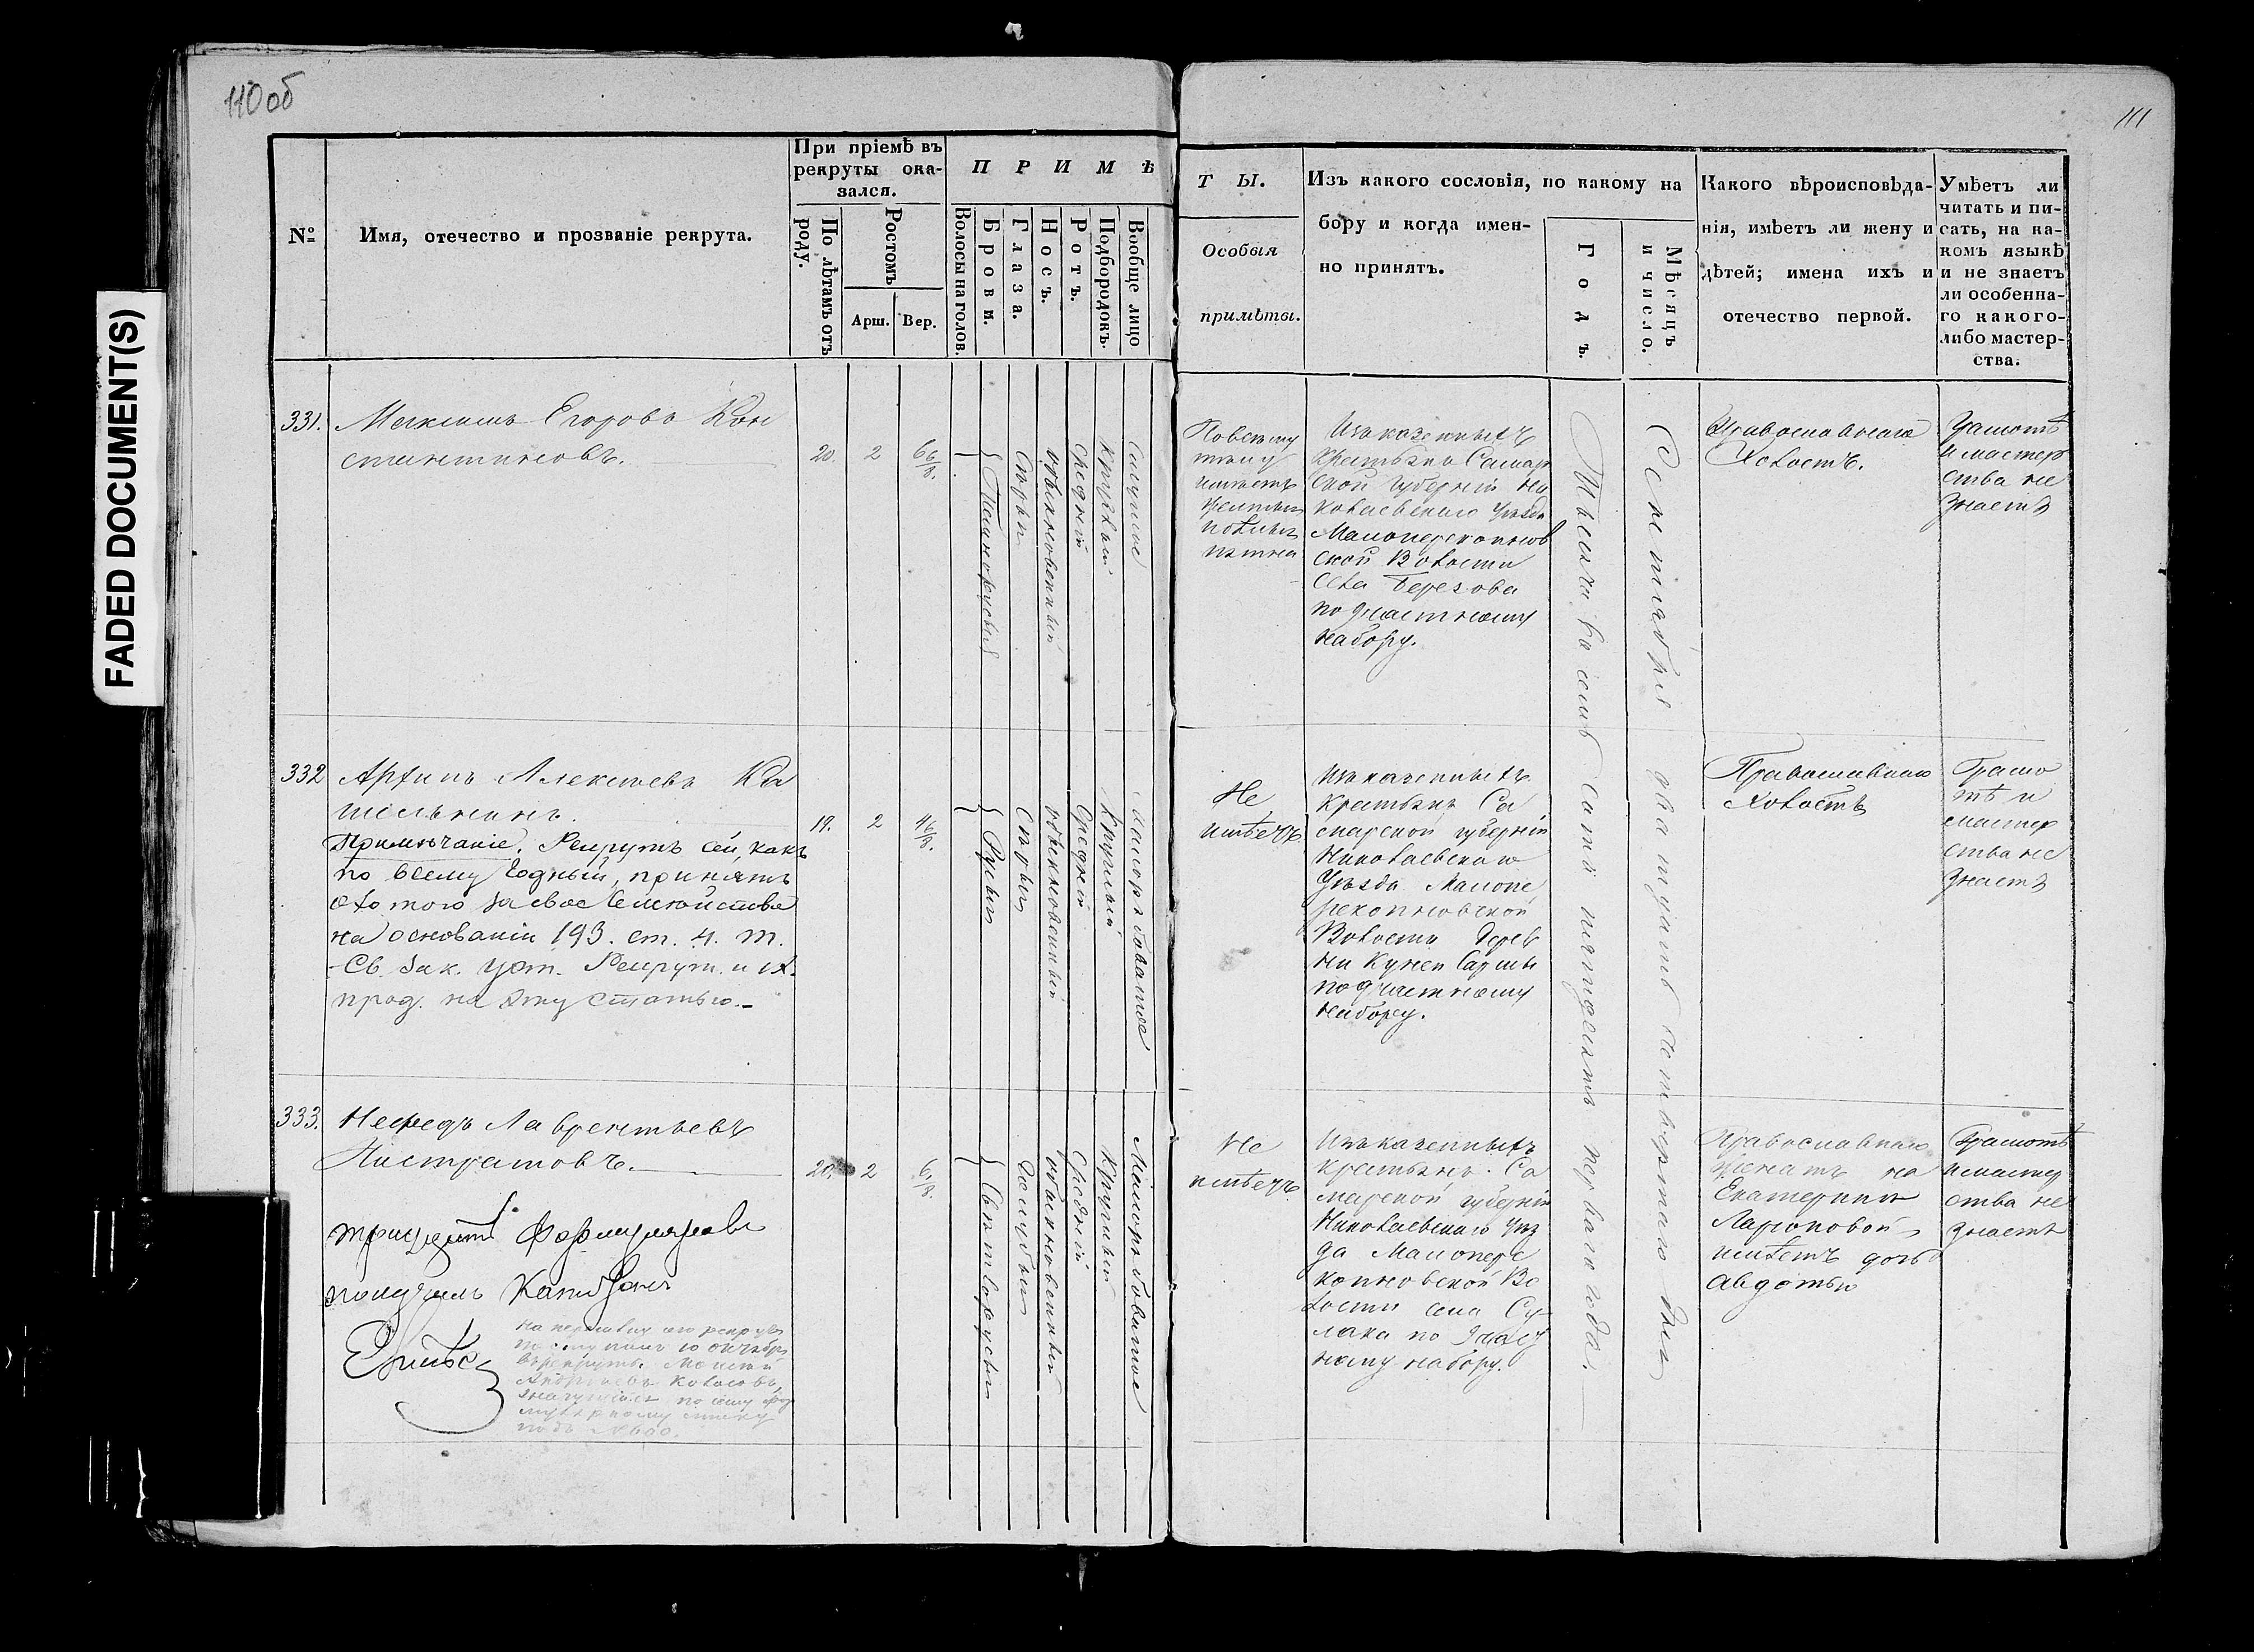 110 об
111
FADED DOCUMENT(S)
№
Имя, отечество и прозваніе рекрута.
При пріемѣ въ
рекруты ока-
зался.
По лѣтамъ отъ
роду.
Ростомъ
Арш.
Вер.
ПРИМѢ
Волосы на голов.
Брови.
Глаза.
Носъ.
Ротъ.
Подбородокъ.
Вообще лицо
ТЫ.
Особыя
примѣты.
Изъ какого сословія, по какому на
бору и когда имен-
но принятъ.
Годъ.
Мѣсяцъ
и число.
Какого вѣроисповѣда-
нія, имѣетъ ли жену и
дѣтей; имена ихъ и
отечество первой.
Умѣетъ ли
читать и пи-
сать, на ка-
комъ языкѣ
и не знаетъ
ли особенна-
го какого-
либо мастер-
ства.
331.
Максимъ Егоровъ Кон
стантиновъ.
20.
2
6 6/8.
Темнорусыя
Сѣрыя
обыкновенный
средній
круглый
смуглое
По всему
тѣлу
имѣетъ
пятна
Изъ казенныхъ
Крестьянъ Самар
ской губерніи Ни
колаевскаго уѣзда
Малоперекопнов
ской Волости
села Березова
по участному
набору.
Тысяча восемь сотъ пятьдесятъ перваго года.
Сентября двадцать четвертаго дня
Православнаго
Холостъ.
Грамотѣ
и мастер
ства не
знаетъ
332
Архипъ Алексѣевъ Ка
шельнинъ.
Примѣчаніе. Рекрутъ сей, какъ
по всему годный, принятъ
охотою за свое семейство
на основаніи 193. ст. 4. т.
Св. Зак. Уст. Рекрут. и IX.
прод. на эту статью.
19.
2
4 6/8.
Русыя
Сѣрыя
обыкновенный
Средній
Круглый
малорябоватое
Не
имѣетъ
Изъ казенныхъ
Крестьянъ Са
марской губерніи
Николаевскаго
Уѣзда Малопе
рекопновской
Волости Дерев
ни Кучен Сармы
по участному
набору.
Православнаго
Холостъ
Грамо
тѣ и
мастер
ства не
знаетъ
333.
Нефедъ Лаврентьевъ
Листратовъ.
20.
2
6/8.
Свѣтлорусыя
Голубыя
обыкновенный
средній
круглый
Малорябоватое
Не
имѣетъ
Изъ казенныхъ
крестьянъ Са
марской губерніи
Николаевскаго уѣз
да Малопере
копновской Во
лости села Су
лака по участ
ному набору.
Православнаго
женатъ на
Екатеринѣ
Ларіоновой
имѣетъ дочь
Авдотью
Грамотѣ
и мастер
ства не
знаетъ
получилъ